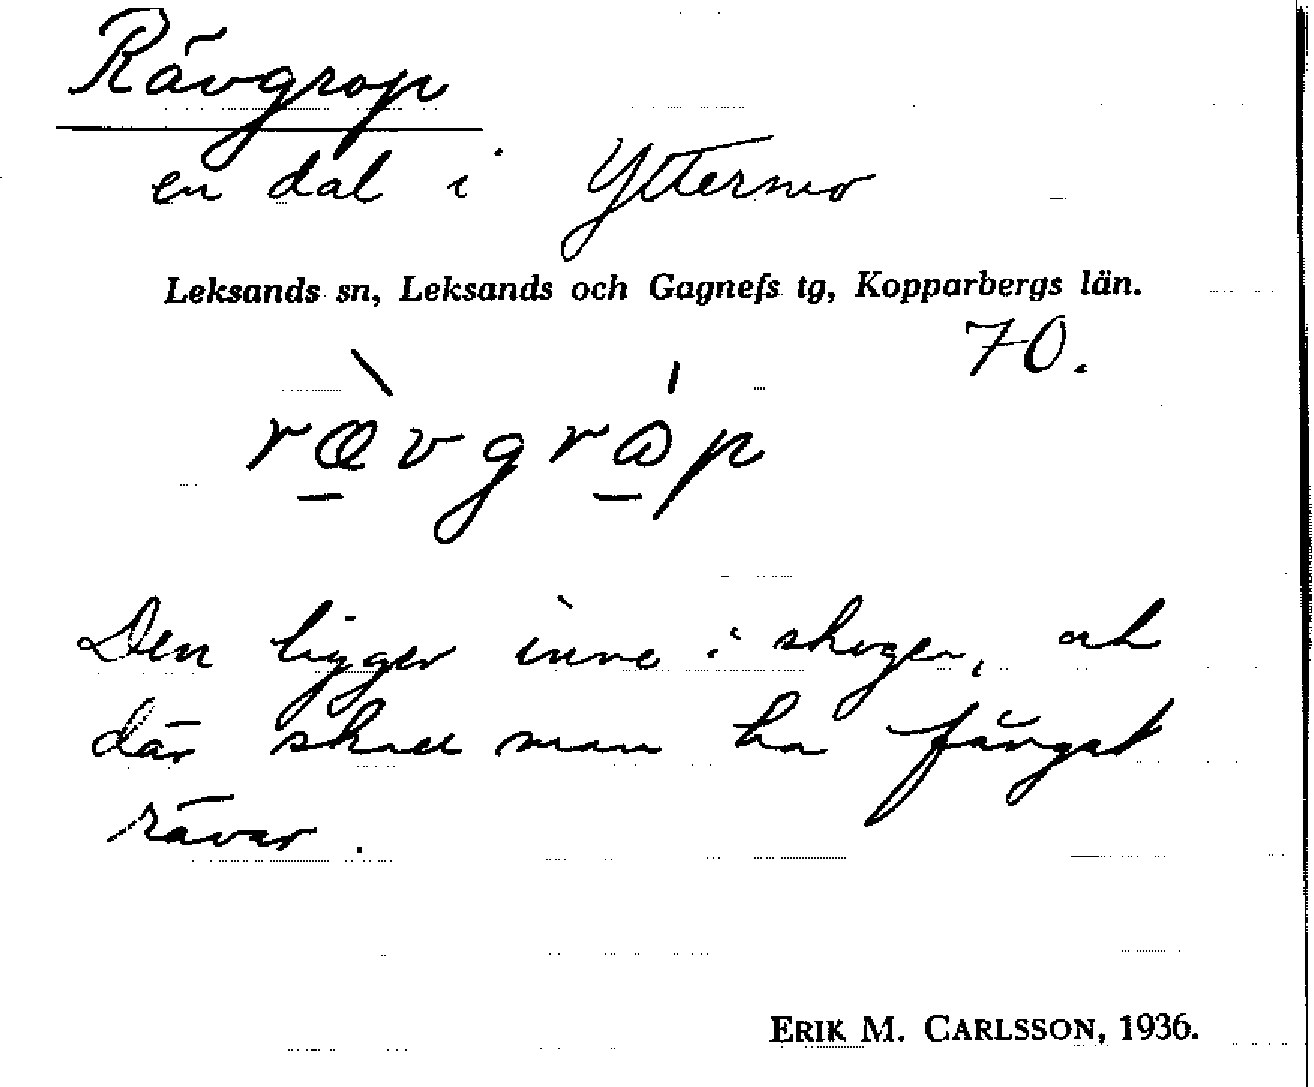 Rävgrop
en dal i Yttermo
Leksands sn, Leksands och Gagnefs tg, Kopparbergs län.
70.
rævgrap
Den ligger inne i skogen, och
där skall man ha fångat
rävar.
ERIK M. CARLSSON, 1936.